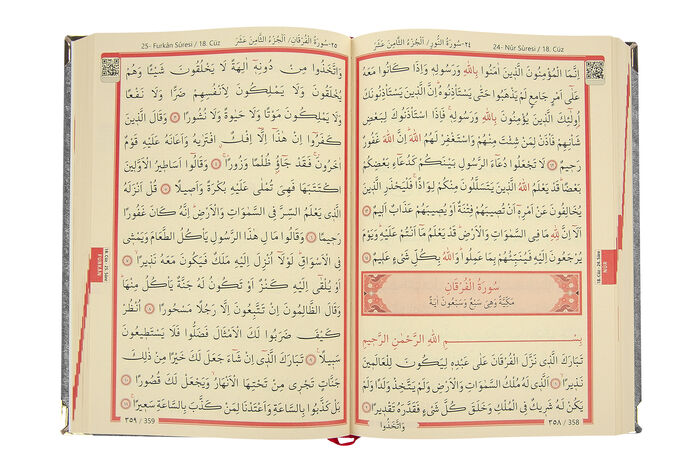 ٢٤-سُورَةُ النُّورِ/ اَلْجُزْءُ الثَّامِنَ عَشَرَ 24- Nûr Sûresi / 18. Cüz
اِنَّمَا الْمُؤْمِنُونَ الَّذِينَ اٰمَنُوا بِاللّٰهِ وَرَسُولِهِ وَاِذَا كَانُوا مَعَهُ
عَلٰٓى اَمْرٍ جَامِعٍ لَمْ يَذْهَبُوا حَتّٰى يَسْتَأْذِنُوهُ اِنَّ الَّذِينَ يَسْتَأْذِنُونَكَ
اُو۬لٰٓئِكَ الَّذِينَ يُؤْمِنُونَ بِاللّٰهِ وَرَسُولِهِ فَاِذَا اسْتَأْذَنُوكَ لِبَعْضِ
شَأْنِهِمْ فَأْذَنْ لِمَنْ شِئْتَ مِنْهُمْ وَاسْتَغْفِرْ لَهُمُ اللّٰهَ اِنَّ اللّٰهَ غَفُورٌ
رَحِيمٌ ﴿٦٢﴾ لَا تَجْعَلُوا دُعَٓاءَ الرَّسُولِ بَيْنَكُمْ كَدُعَٓاءِ بَعْضِكُمْ
بَعْضًا قَدْ يَعْلَمُ اللّٰهُ الَّذِينَ يَتَسَلَّلُونَ مِنْكُمْ لِوَاذًا فَلْيَحْذَرِ الَّذِينَ
يُخَالِفُونَ عَنْ اَمْرِهِ اَنْ تُصِيبَهُمْ فِتْنَةٌ اَوْ يُصِيبَهُمْ عَذَابٌ اَلِيمٌ ﴿٦٣﴾
اَلَٓا اِنَّ لِلّٰهِ مَا فِى السَّمٰوَاتِ وَالْاَرْضِ قَدْ يَعْلَمُ مَٓا اَنْتُمْ عَلَيْهِ وَيَوْمَ
يُرْجَعُونَ اِلَيْهِ فَيُنَبِّئُهُمْ بِمَا عَمِلُوا وَاللّٰهُ بِكُلِّ شَىْءٍ عَلِيمٌ ﴿٦٤﴾
سُورَةُ الْفُرْقَانِ
مَكِّيَّةٌ وَهِىَ سَبْعٌ وَسَبْعُونَ اٰيَةً
بِسْمِ اللّٰهِ الرَّحْمٰنِ الرَّحِيمِ
تَبَارَكَ الَّذِى نَزَّلَ الْفُرْقَانَ عَلٰى عَبْدِهِ لِيَكُونَ لِلْعَالَمِينَ
نَذِيرًا ﴿١﴾ اَلَّذِى لَهُ مُلْكُ السَّمٰوَاتِ وَالْاَرْضِ وَلَمْ يَتَّخِذْ وَلَدًا وَلَمْ
يَكُنْ لَهُ شَرِيكٌ فِى الْمُلْكِ وَخَلَقَ كُلَّ شَىْءٍ فَقَدَّرَهُ تَقْدِيرًا ﴿٢﴾
وَاتَّخَذُوا
٣٥٨ / 358
18. Cüz - 24. Sûre
NÛR
25- Furkân Sûresi / 18. Cüz ٢٥-سُورَةُ الْفُرْقَانِ/ اَلْجُزْءُ الثَّامِنَ عَشَرَ
وَاتَّخَذُوا مِنْ دُونِهِٓ اٰلِهَةً لَا يَخْلُقُونَ شَيْـًٔا وَهُمْ
يُخْلَقُونَ وَلَا يَمْلِكُونَ لِاَنْفُسِهِمْ ضَرًّا وَلَا نَفْعًا
وَلَا يَمْلِكُونَ مَوْتًا وَلَا حَيٰوةً وَلَا نُشُورًا ﴿٣﴾ وَقَالَ الَّذِينَ
كَفَرُٓوا اِنْ هٰذَٓا اِلَّٓا اِفْكٌ افْتَرٰيهُ وَاَعَانَهُ عَلَيْهِ قَوْمٌ
اٰخَرُونَ فَقَدْ جَٓاؤُ ظُلْمًا وَزُورًا ﴿٤﴾ وَقَالُٓوا اَسَاطِيرُ الْاَوَّلِينَ
اكْتَتَبَهَا فَهِىَ تُمْلٰى عَلَيْهِ بُكْرَةً وَاَصِيلًا ﴿٥﴾ قُلْ اَنْزَلَهُ
الَّذِى يَعْلَمُ السِّرَّ فِى السَّمٰوَاتِ وَالْاَرْضِ اِنَّهُ كَانَ غَفُورًا
رَحِيمًا ﴿٦﴾ وَقَالُوا مَالِ هٰذَا الرَّسُولِ يَأْكُلُ الطَّعَامَ وَيَمْشِى
فِى الْاَسْوَاقِ لَوْلَٓا اُنْزِلَ اِلَيْهِ مَلَكٌ فَيَكُونَ مَعَهُ نَذِيرًا ﴿٧﴾
اَوْ يُلْقٰٓى اِلَيْهِ كَنْزٌ اَوْ تَكُونُ لَهُ جَنَّةٌ يَأْكُلُ مِنْهَا
وَقَالَ الظَّالِمُونَ اِنْ تَتَّبِعُونَ اِلَّا رَجُلًا مَسْحُورًا ﴿٨﴾ اُنْظُرْ
كَيْفَ ضَرَبُوا لَكَ الْاَمْثَالَ فَضَلُّوا فَلَا يَسْتَطِيعُونَ
سَبِيلًا ﴿٩﴾ تَبَارَكَ الَّذِٓى اِنْ شَٓاءَ جَعَلَ لَكَ خَيْرًا مِنْ ذٰلِكَ
جَنَّاتٍ تَجْرِى مِنْ تَحْتِهَا الْاَنْهَارُ وَيَجْعَلْ لَكَ قُصُورًا ﴿١٠﴾
بَلْ كَذَّبُوا بِالسَّاعَةِ وَاَعْتَدْنَا لِمَنْ كَذَّبَ بِالسَّاعَةِ سَعِيرًا ﴿١١﴾
٣٥٩ / 359
18. Cüz - 25. Sûre
FURKÂN